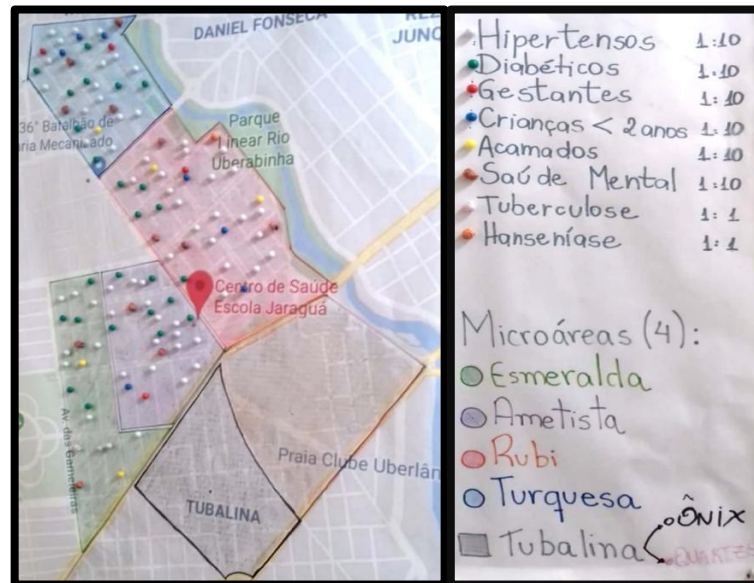 DANIEL FONSECA
JUNC
36° Batalhão de
ria Mecanizado
Parque
Linear Rio
Uberabinha
Centro de Saúde
Escola Jaraguá
Av. das Gameleiras
Praia Clube Uberlân
TUBALINA
Hipertensos 1:10
Diabéticos 1:10
Gestantes 1:10
Crianças < 2 anos 1:10
Acamados 1:10
Saúde Mental 1:10
Tuberculose 1:1
Hanseníase 1:1
Microáreas (4):
Esmeralda
Ametista
Rubi
Turquesa
ÔNIX
Tubalina